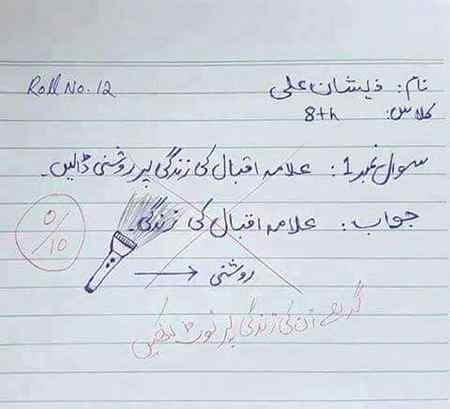 Roll No. 12
نام: ذیشان علی
کلاس: 8th
سوال نمبر 1: علامہ اقبال کی زندگی پر روشنی ڈالیں۔
جواب: علامہ اقبال کی زندگی۔
روشنی
0/10
گدھے ان کی زندگی پر نوٹ لکھیں